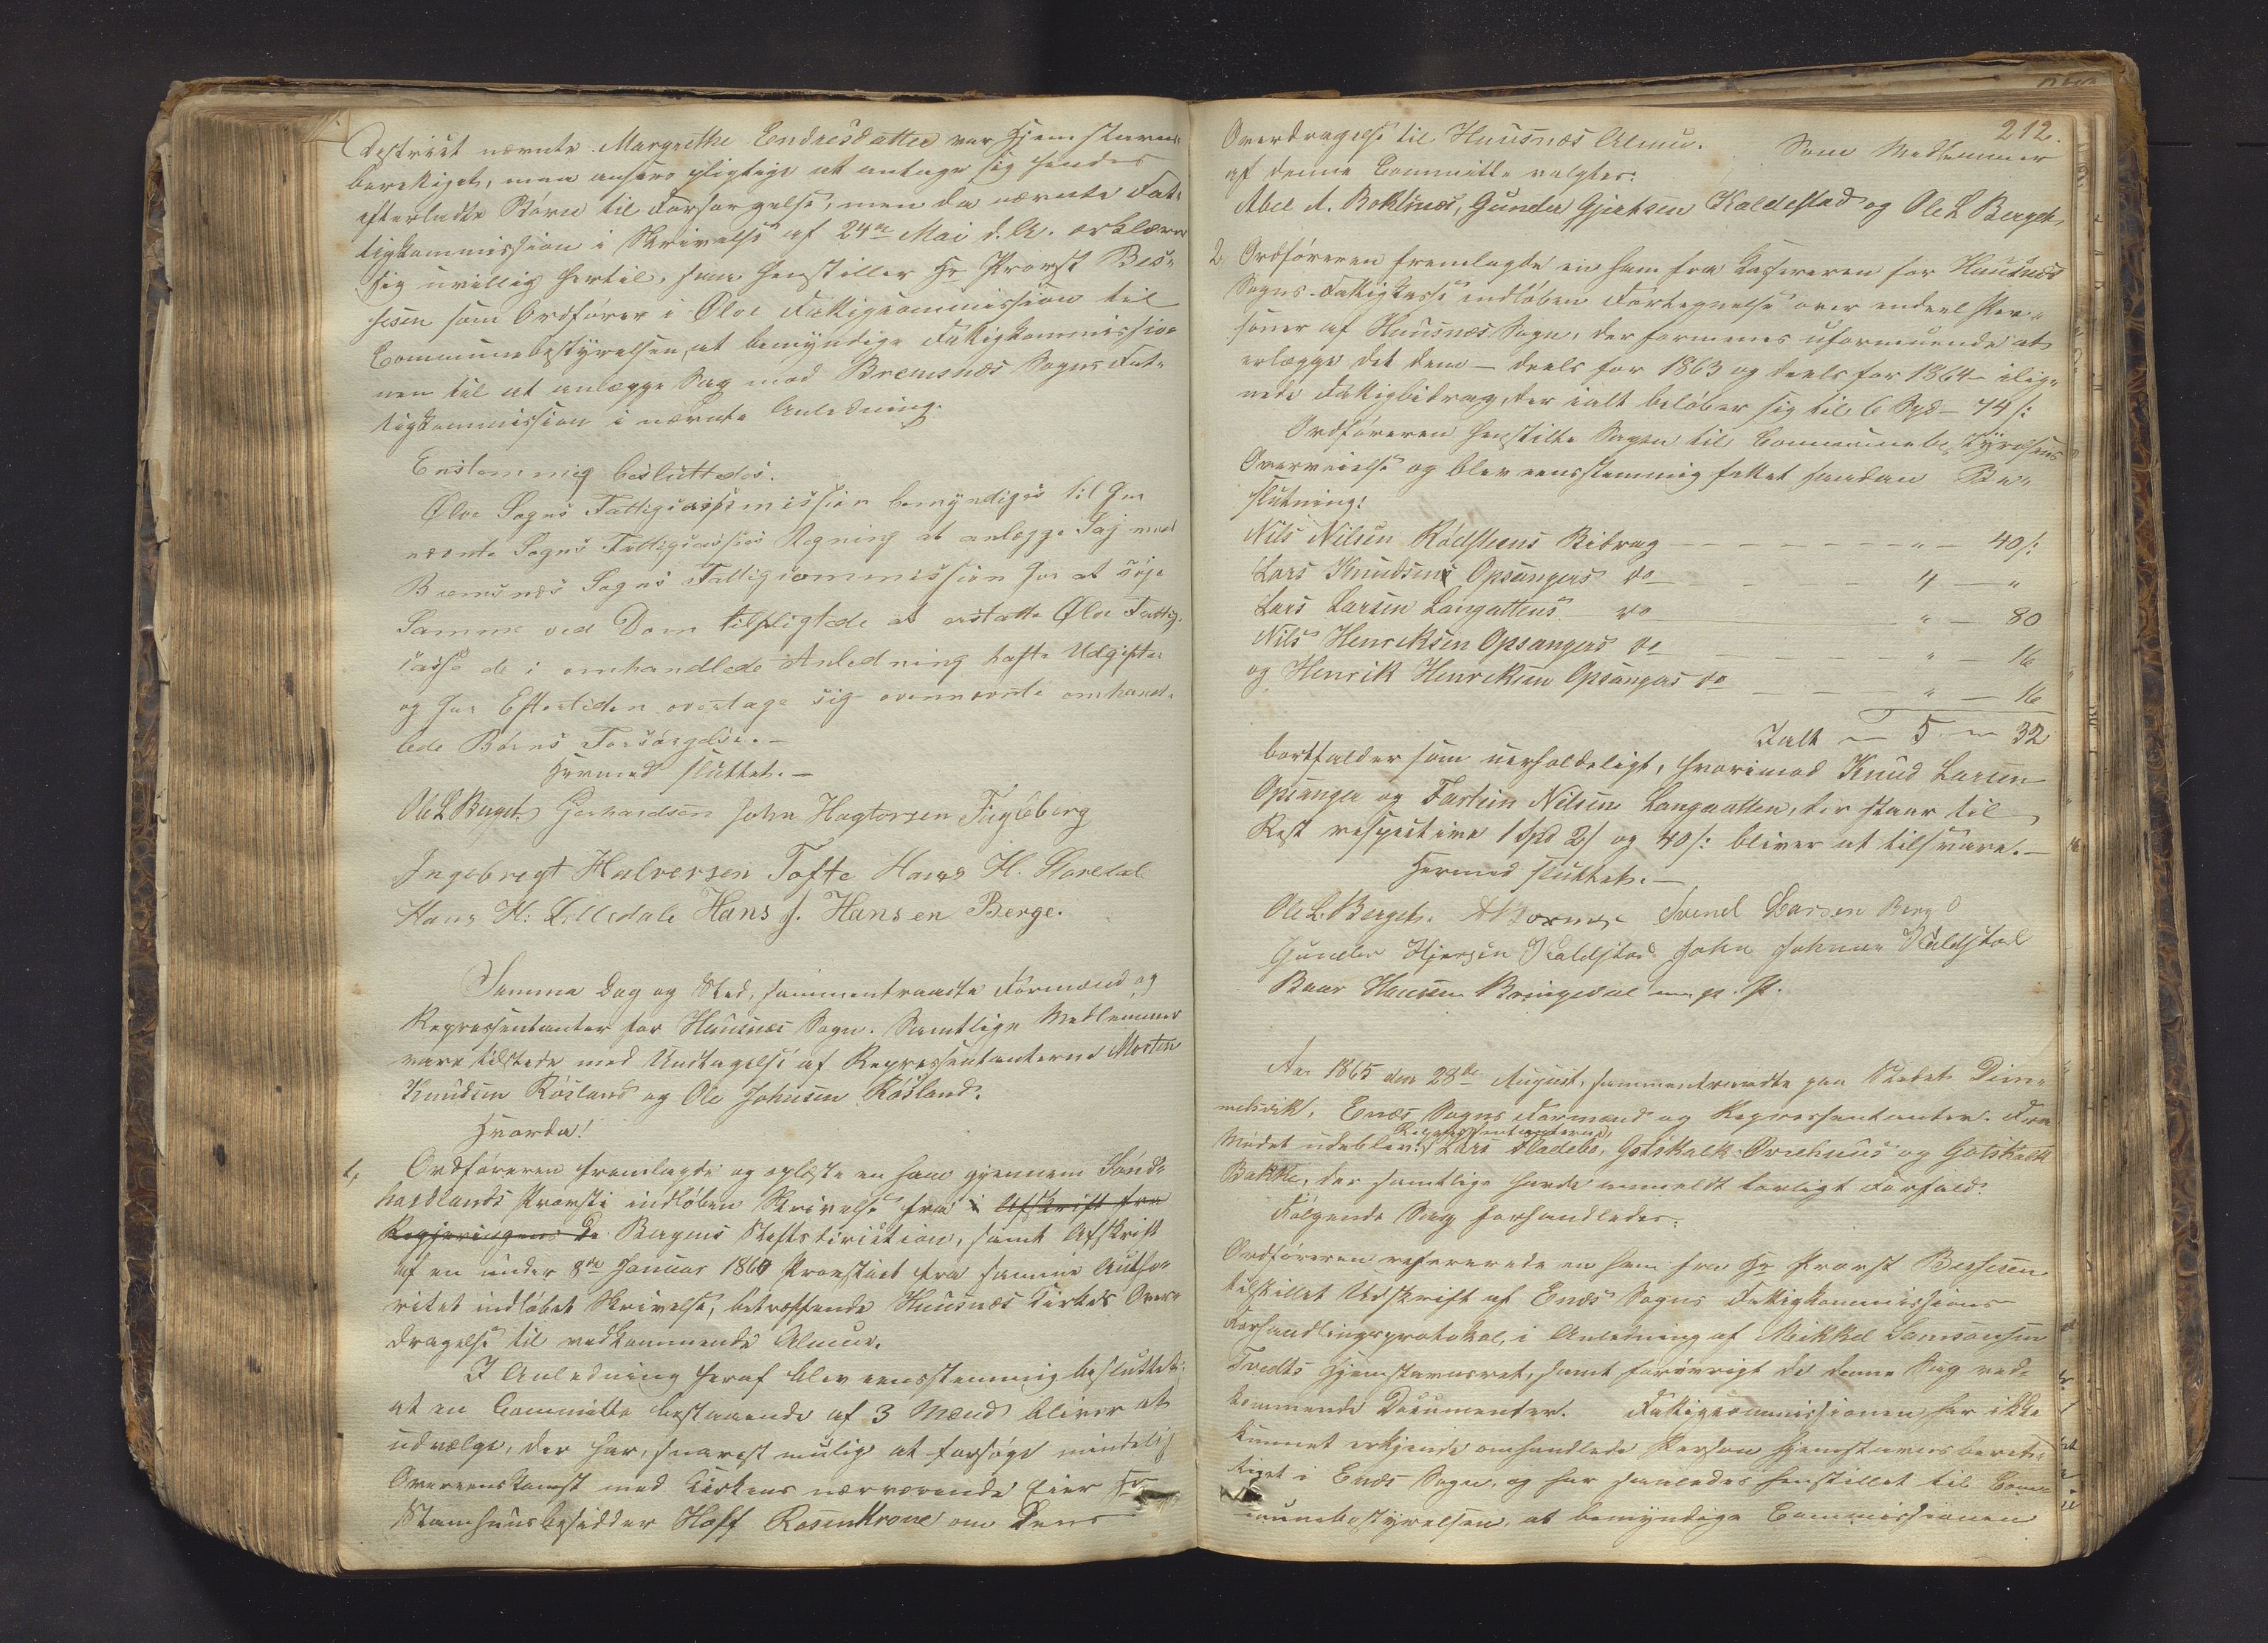 District nævnte Margrethe Endresdatter var hjemstavns-
beretiget, maa ansees pligtige at antage sig hendes
efterladte Børn til Forsørgelse, men da nævnte Fat-
tigkommission i Skrivelse af 24de Mai d. A. erklærer
sig uvillig hertil, saa henstiller Hr Provst Bes-
sesen som Ordfører i Ølve Fattigcommission til
Communebestyrelsen, at bemyndige Fattigkommissio-
nen til at anlægge Sag mod Bremsnæs Sogns Fat-
tigkommission i nævnte Anledning.
Enstemmig besluttedes:
Ølve Sogns Fattigcommission bemyndiges til for
nævnte Sogns Fattigcasses Regning at anlægge Sag mod
Bremsnæs Sogns Fattigcommission for at søge
Samme ved Dom tilpligtede at erstatte Ølve Fattig-
casse de i omhandlede Anledning hafte Udgifter
og for Eftertiden overtage sig ovennævnte omhand-
lede Børns Forsørgelse. —
Hermed sluttet. —
Ole L Berget. Gerhardsen John Hagtorsen Fugleberg
Ingebregt Halversen Tofte Hans H.
Hans H: Lilledale Hans J. Hansen Berge.
Samme Dag og Sted, sammentraadte Formænd og
Repræsentanter for Huusnæs Sogn. Samtlige Medlemmer
vare tilstede med Undtagelse af Repræsentanterne Morten
Knudsen Røsland og Ole Johnsen Røsland.
Hvorda!
1, Ordføreren fremlagde og oplæste en ham gjennem Sønd-
hordlands Provsti indløben Skrivelse fra i Afskrift fra
Regjeringens De Bergens Stiftsdirection, samt Afskrift
af en under 8de Januar 1860 Provstiet fra samme Autho-
ritet indløbet Skrivelse, betræffende Huusnæs Kirkes Over-
dragelse til vedkommende Almue.
I Anledning heraf blev eensstemmig besluttet:
at en Committe bestaaende af 3 Mænd bliver at
udvælge, der har, snarest mulig at forsøge mindelig
Overeenskomst med Kirkens nærværende Eier Hr
Stamhuusbesidder Hoff Rosenkrone om dens
212.
Overdragelse til Huusnæs Almue. Som Medlemmer
af denne Committe valgtes:
Abel A. Boklinæs, Gunder Gjertsen Kaldestad og Ole L Berget,
2. Ordføreren fremlagde en ham fra Kassereren for Huusnæs
Sogns Fattigkasse indløben Fortegnelse over endeel Per-
soner af Huusnæs Sogn, der formenes uformuende at
erlægge det dem — deels for 1863 og deels for 1864 — ilig-
nede Fattigbidrag, der ialt beløber sig til 6 Spd — 74 s:
Ordføreren henstilte Sagen til Communebestyrelsens
Overveielse og blev eensstemmig fattet saadan Be-
slutning:
Nils Nilsen Rødsteens Bidrag — — — — — — " — 40 s:
Lars Knudsens Opsangers do — — — 4 — "
Lars Larsen Langattens do — — — " — 80
Nils Henriksen Opsangers do — — — — " — 16
og Henrik Henriksen Opsangers do — — — — " — 16
Ialt — 5 — 32
bortfalder som uerholdeligt, hvorimod Knud Larsen
Opsanger og Fartein Nilsen Langaatten, der staar til
Rest respective 1 Spd 2 s og 40 s: bliver at tilsvare. —
Hermed sluttet. —
Ole L. Berget. Svend Larsen Berg
Gunder Kaldestad John Johnsen
Baar Hansen Bringedal m. p. P.
Aar 1865 den 28de August, sammentraadte paa Stedet Dim-
melsvik, Enæs Sogns Formænd og Repræsentanter. Fra
Repræsentanterne
Mødet udeblev: Lars Fladebø, Gotskalk Ovrehuus og Gotskalk
Bakke, der samtlige havde anmeldt lovligt Forfald.
Følgende Sag forhandledes:
Ordføreren refererede en ham fra Hr Provst Bessesen
tilstillet Udskrift af Enæs Sogns Fattigkommissions
Forhandlingsprotokol, i Anledning af Mikkel Samsonsen
Tvedts Hjemstavnsret, samt forøvrigt de denne Sag ved-
kommende Documenter. Fattigcommissionen har ikke
kunnet erkjende omhandlede Person hjemstavnsberet-
tiget i Enæs Sogn, og har saaledes henstillet til Com-
munebestyrelsen, at bemyndige Commissionen